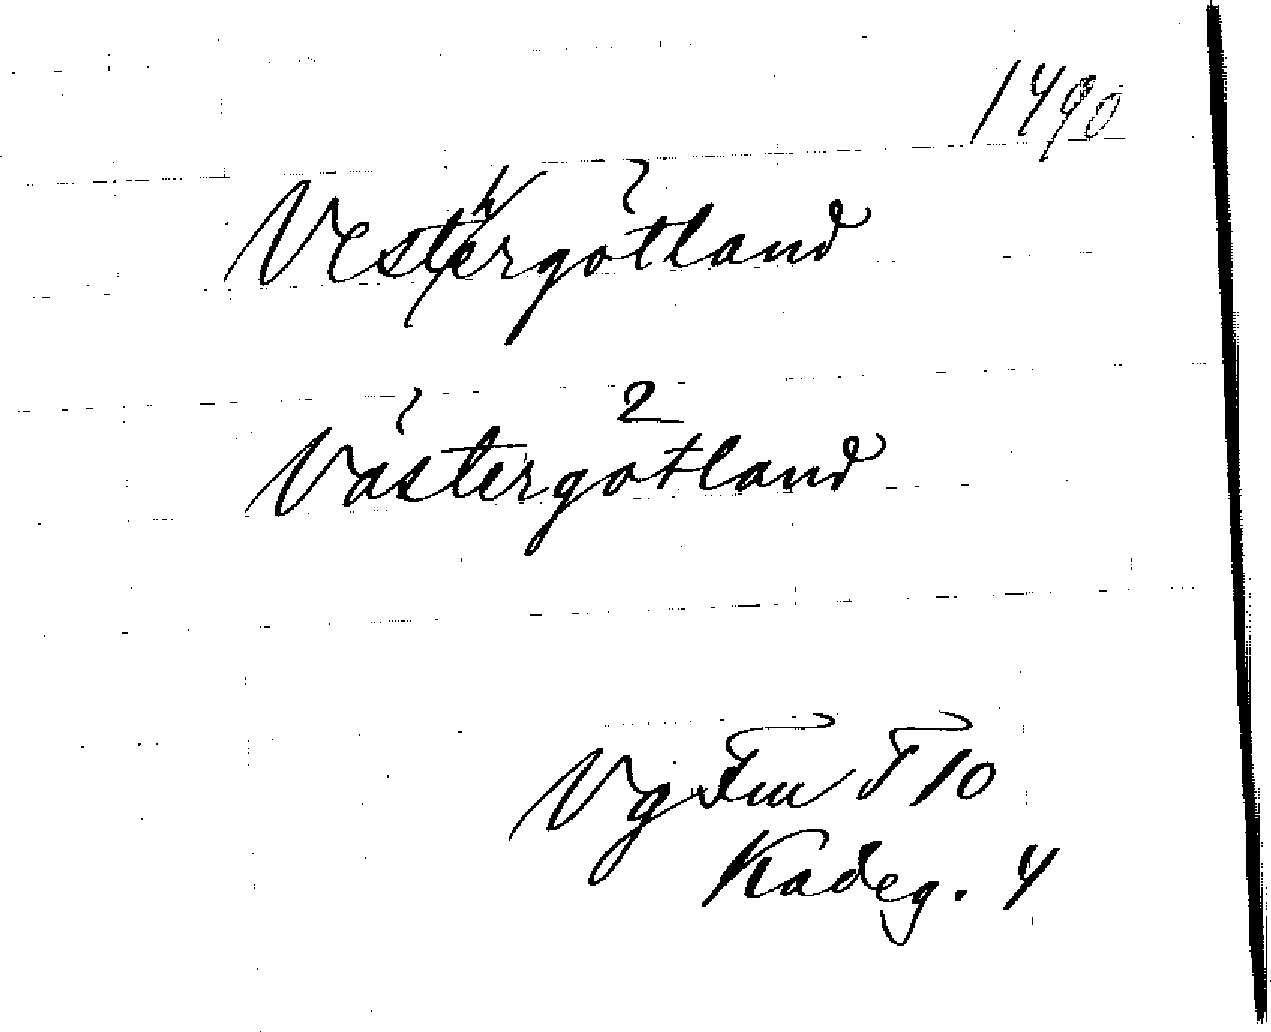 1490
Vestergötland
Västergötland
2
Vg Fm T 10
Kadeg. 4